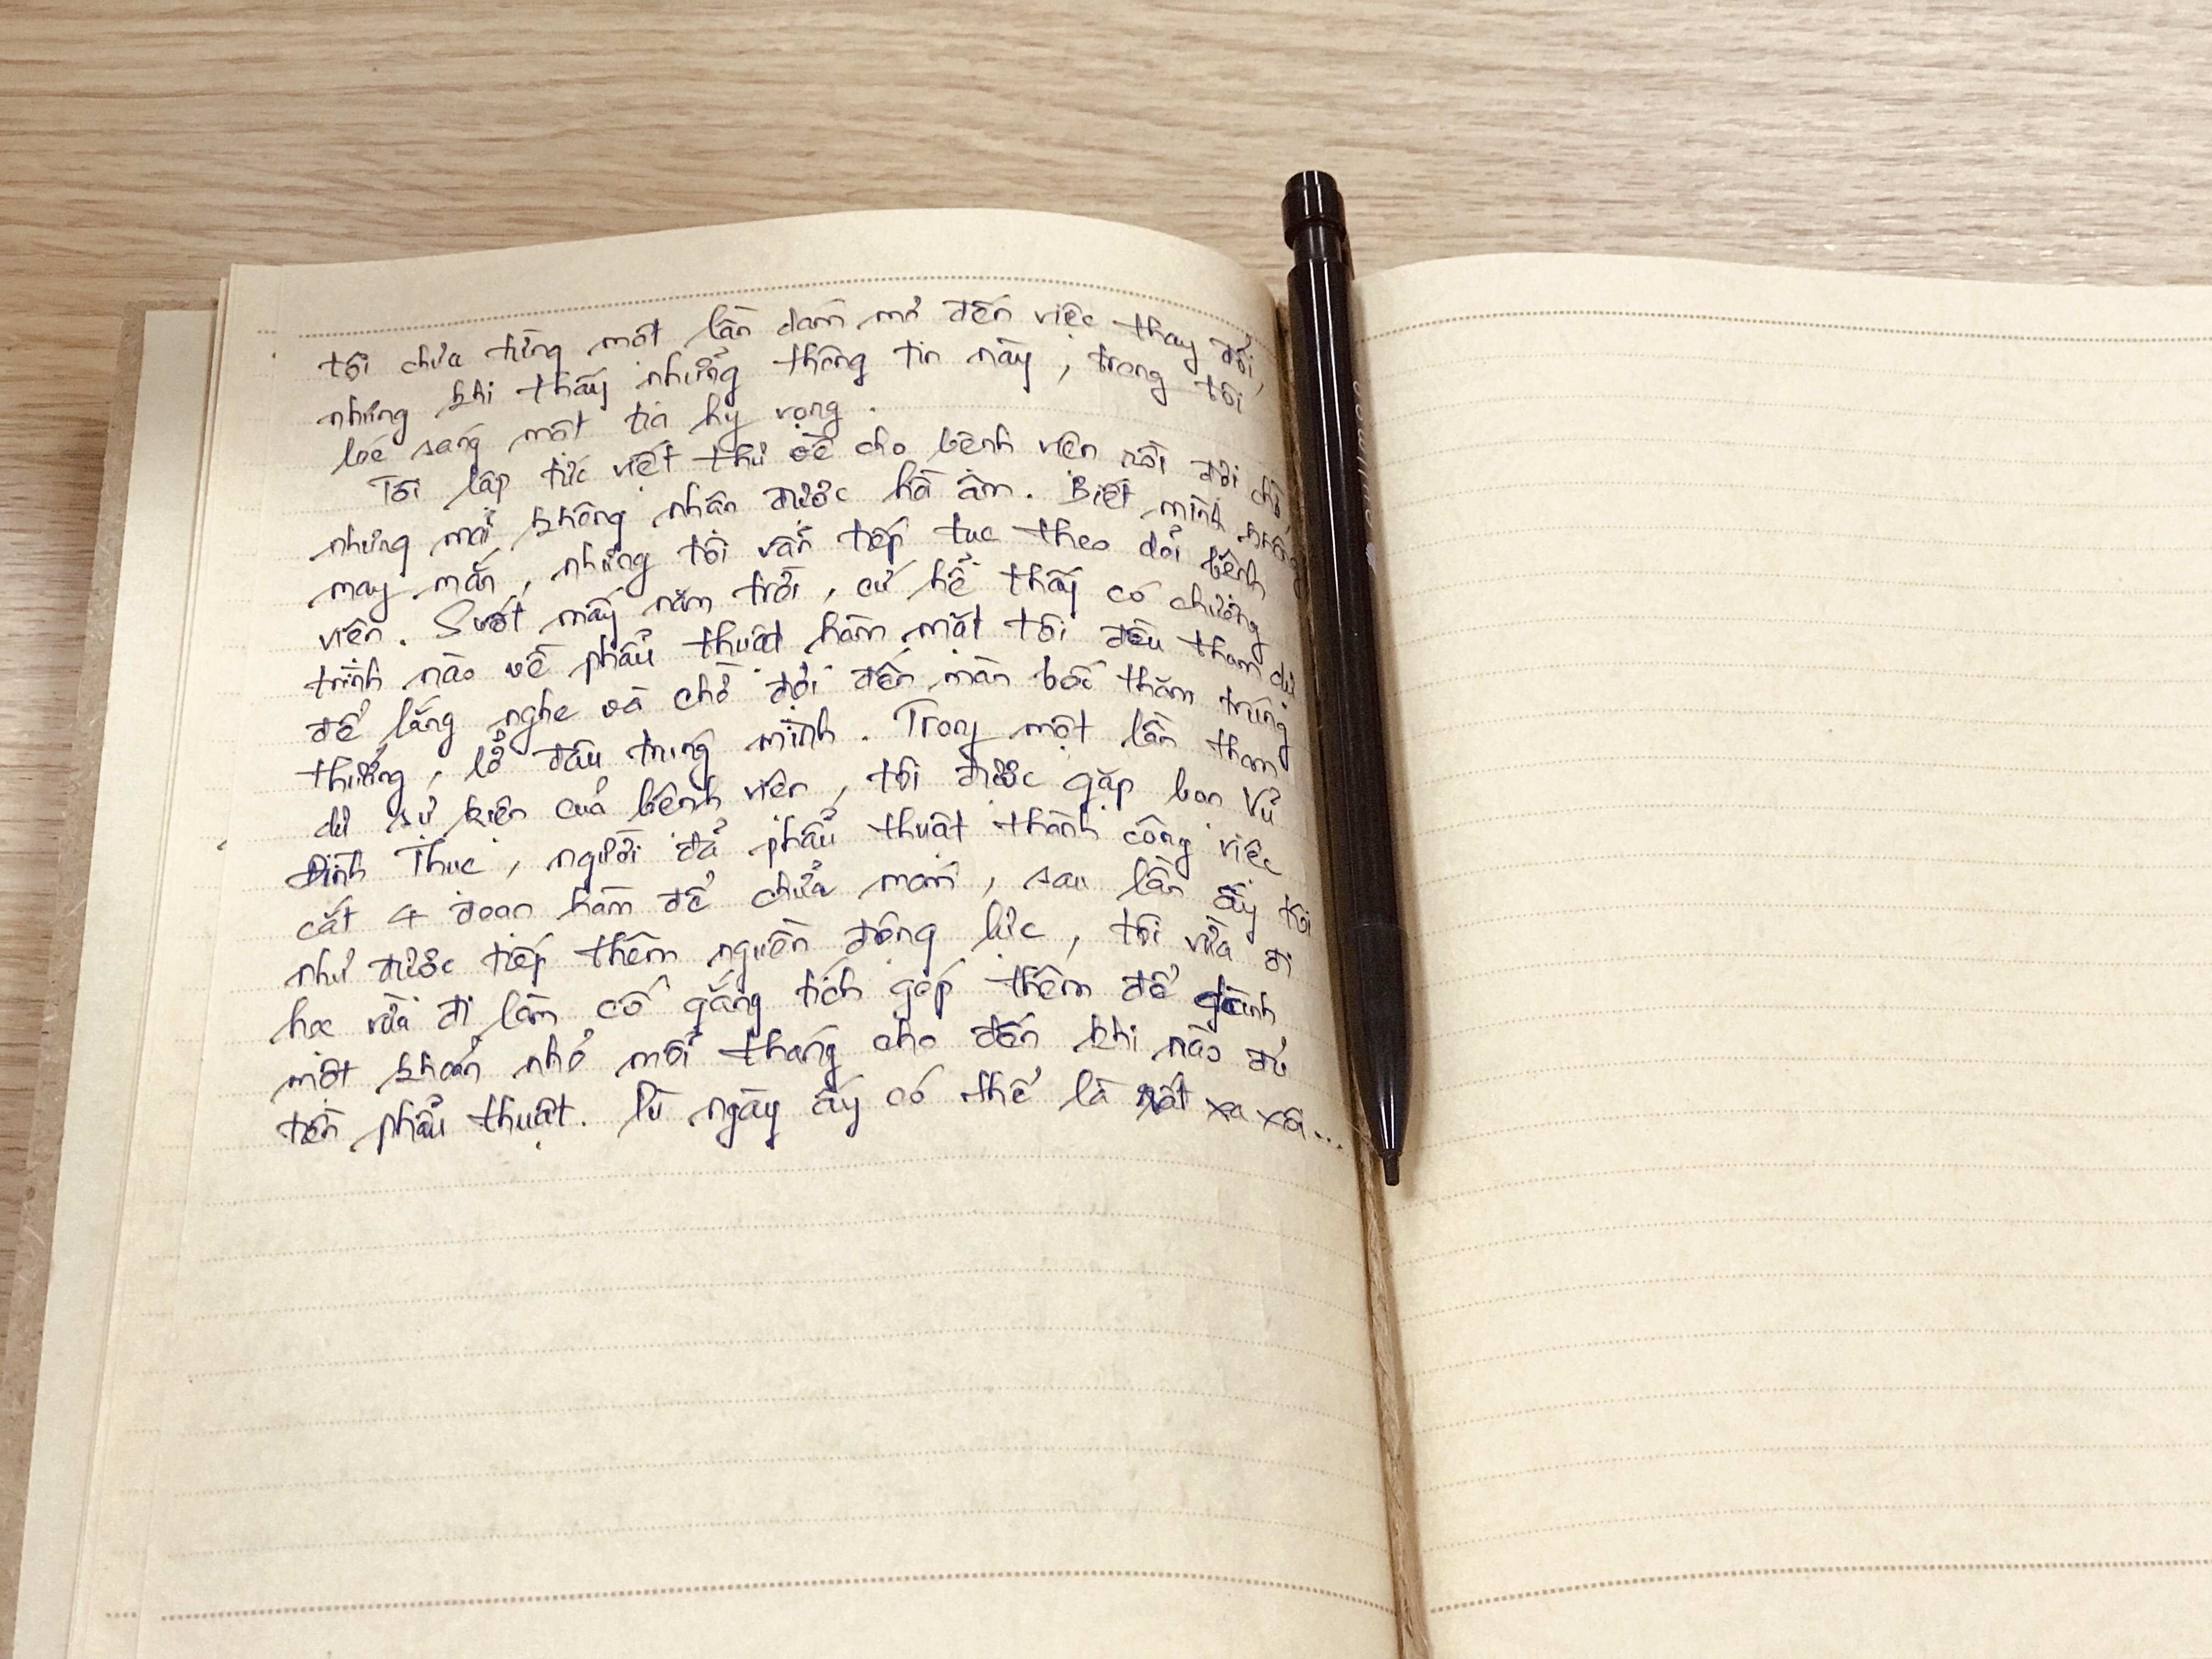 tôi chưa từng một lần dám mơ đến việc thay đổi,
nhưng khi thấy những thông tin này, trong tôi
loé sáng một tia hy vọng.
Tôi lập tức viết thư về cho bệnh viện rồi đợi chờ
nhưng mãi không nhận được hồi âm. Biết mình không
may mắn, nhưng tôi vẫn tiếp tục theo dõi bệnh
viện. Suốt mấy năm trời, cứ hễ thấy có chương
trình nào về phẫu thuật hàm mặt tôi đều tham dự
để lắng nghe và chờ đợi đến màn bốc thăm trúng
thưởng, lỡ đâu trúng mình. Trong một lần tham
dự sự kiện của bệnh viện, tôi được gặp bạn Vũ
Đình Thục, người đã phẫu thuật thành công việc
cắt 4 đoạn hàm để chữa móm, sau lần ấy tôi
như được tiếp thêm nguồn động lực, tôi vừa đi
học vừa đi làm cố gắng tích góp thêm để dành
một khoản nhỏ mỗi tháng cho đến khi nào đủ
tiền phẫu thuật. Dù ngày ấy có thể là rất xa xôi...